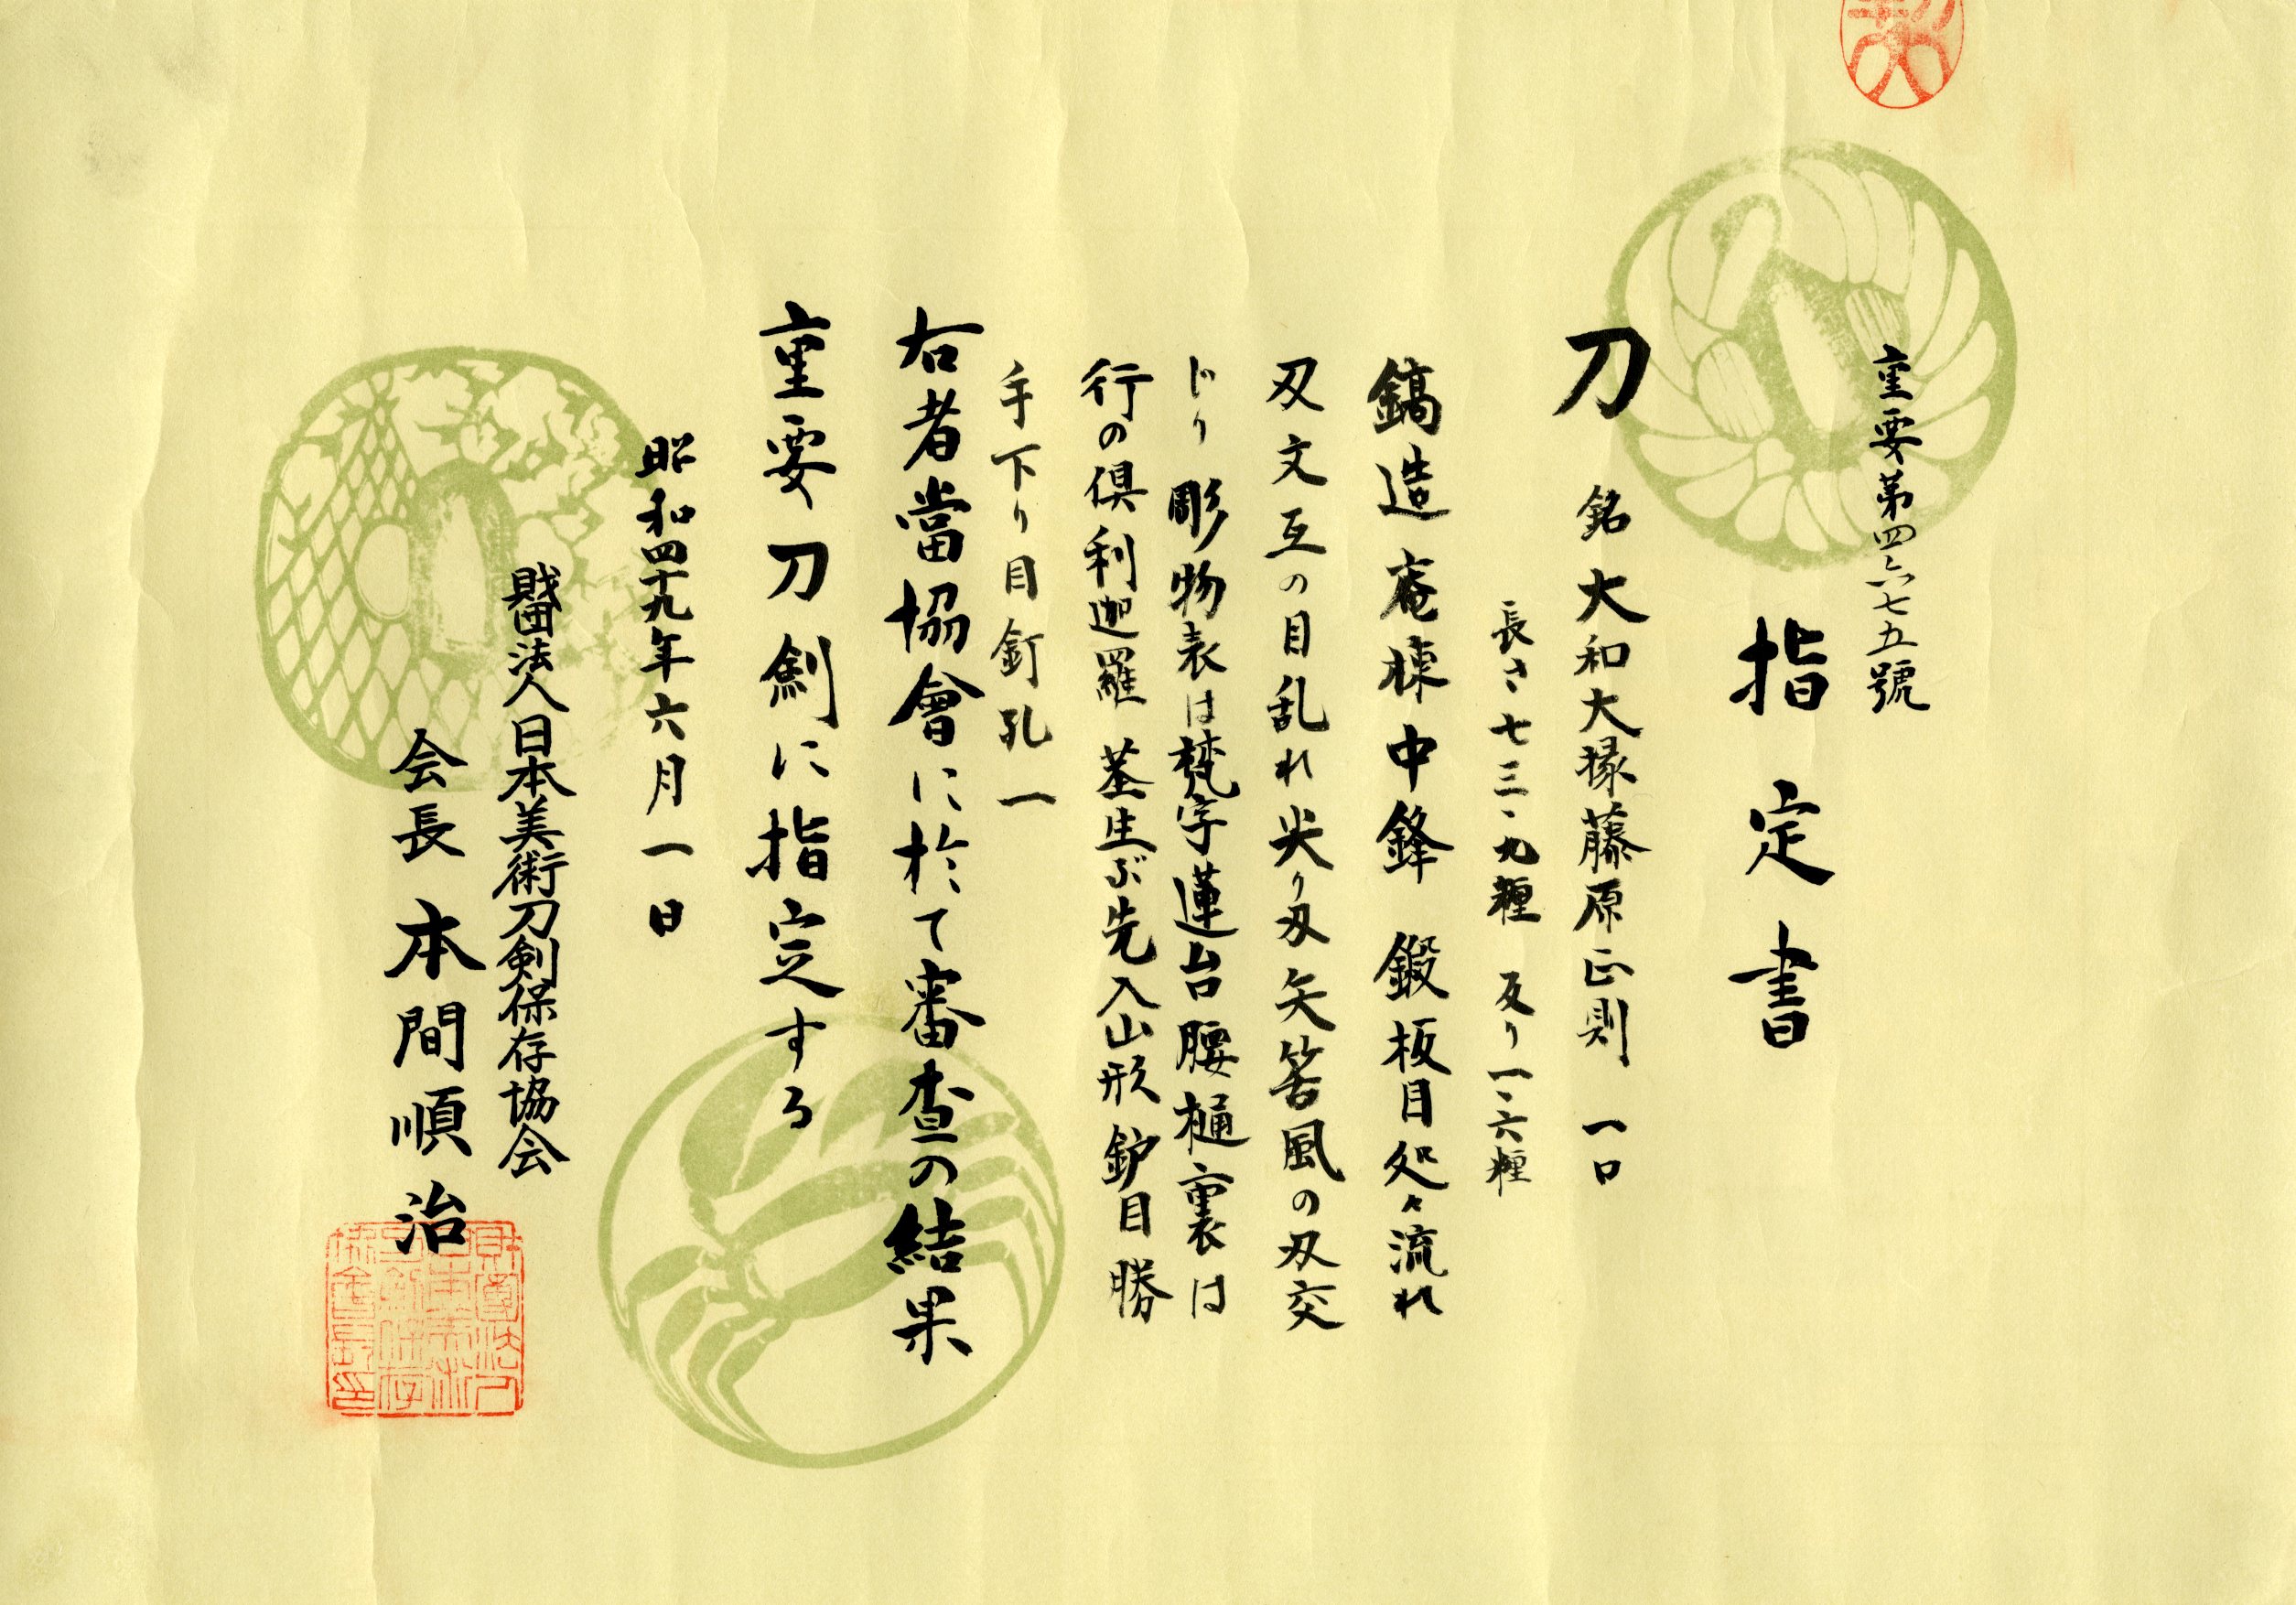 重要第四六七五號
指定書
刀 銘 大和大掾藤原正則 一口
長さ七三・九糎 反り一・六糎
鎬造庵棟中鋒 鍛板目処々流れ
刃文互の目乱れ尖り刃矢筈風の刃交
じり 彫物表は梵字蓮台腰樋裏は
行の倶利迦羅 茎生ぶ先入山形鈩目勝
手下り目釘孔一
右者當協會に於て審査の結果
重要刀剣に指定する
昭和四十九年六月一日
財団法人日本美術刀剣保存協会
会長 本間順治